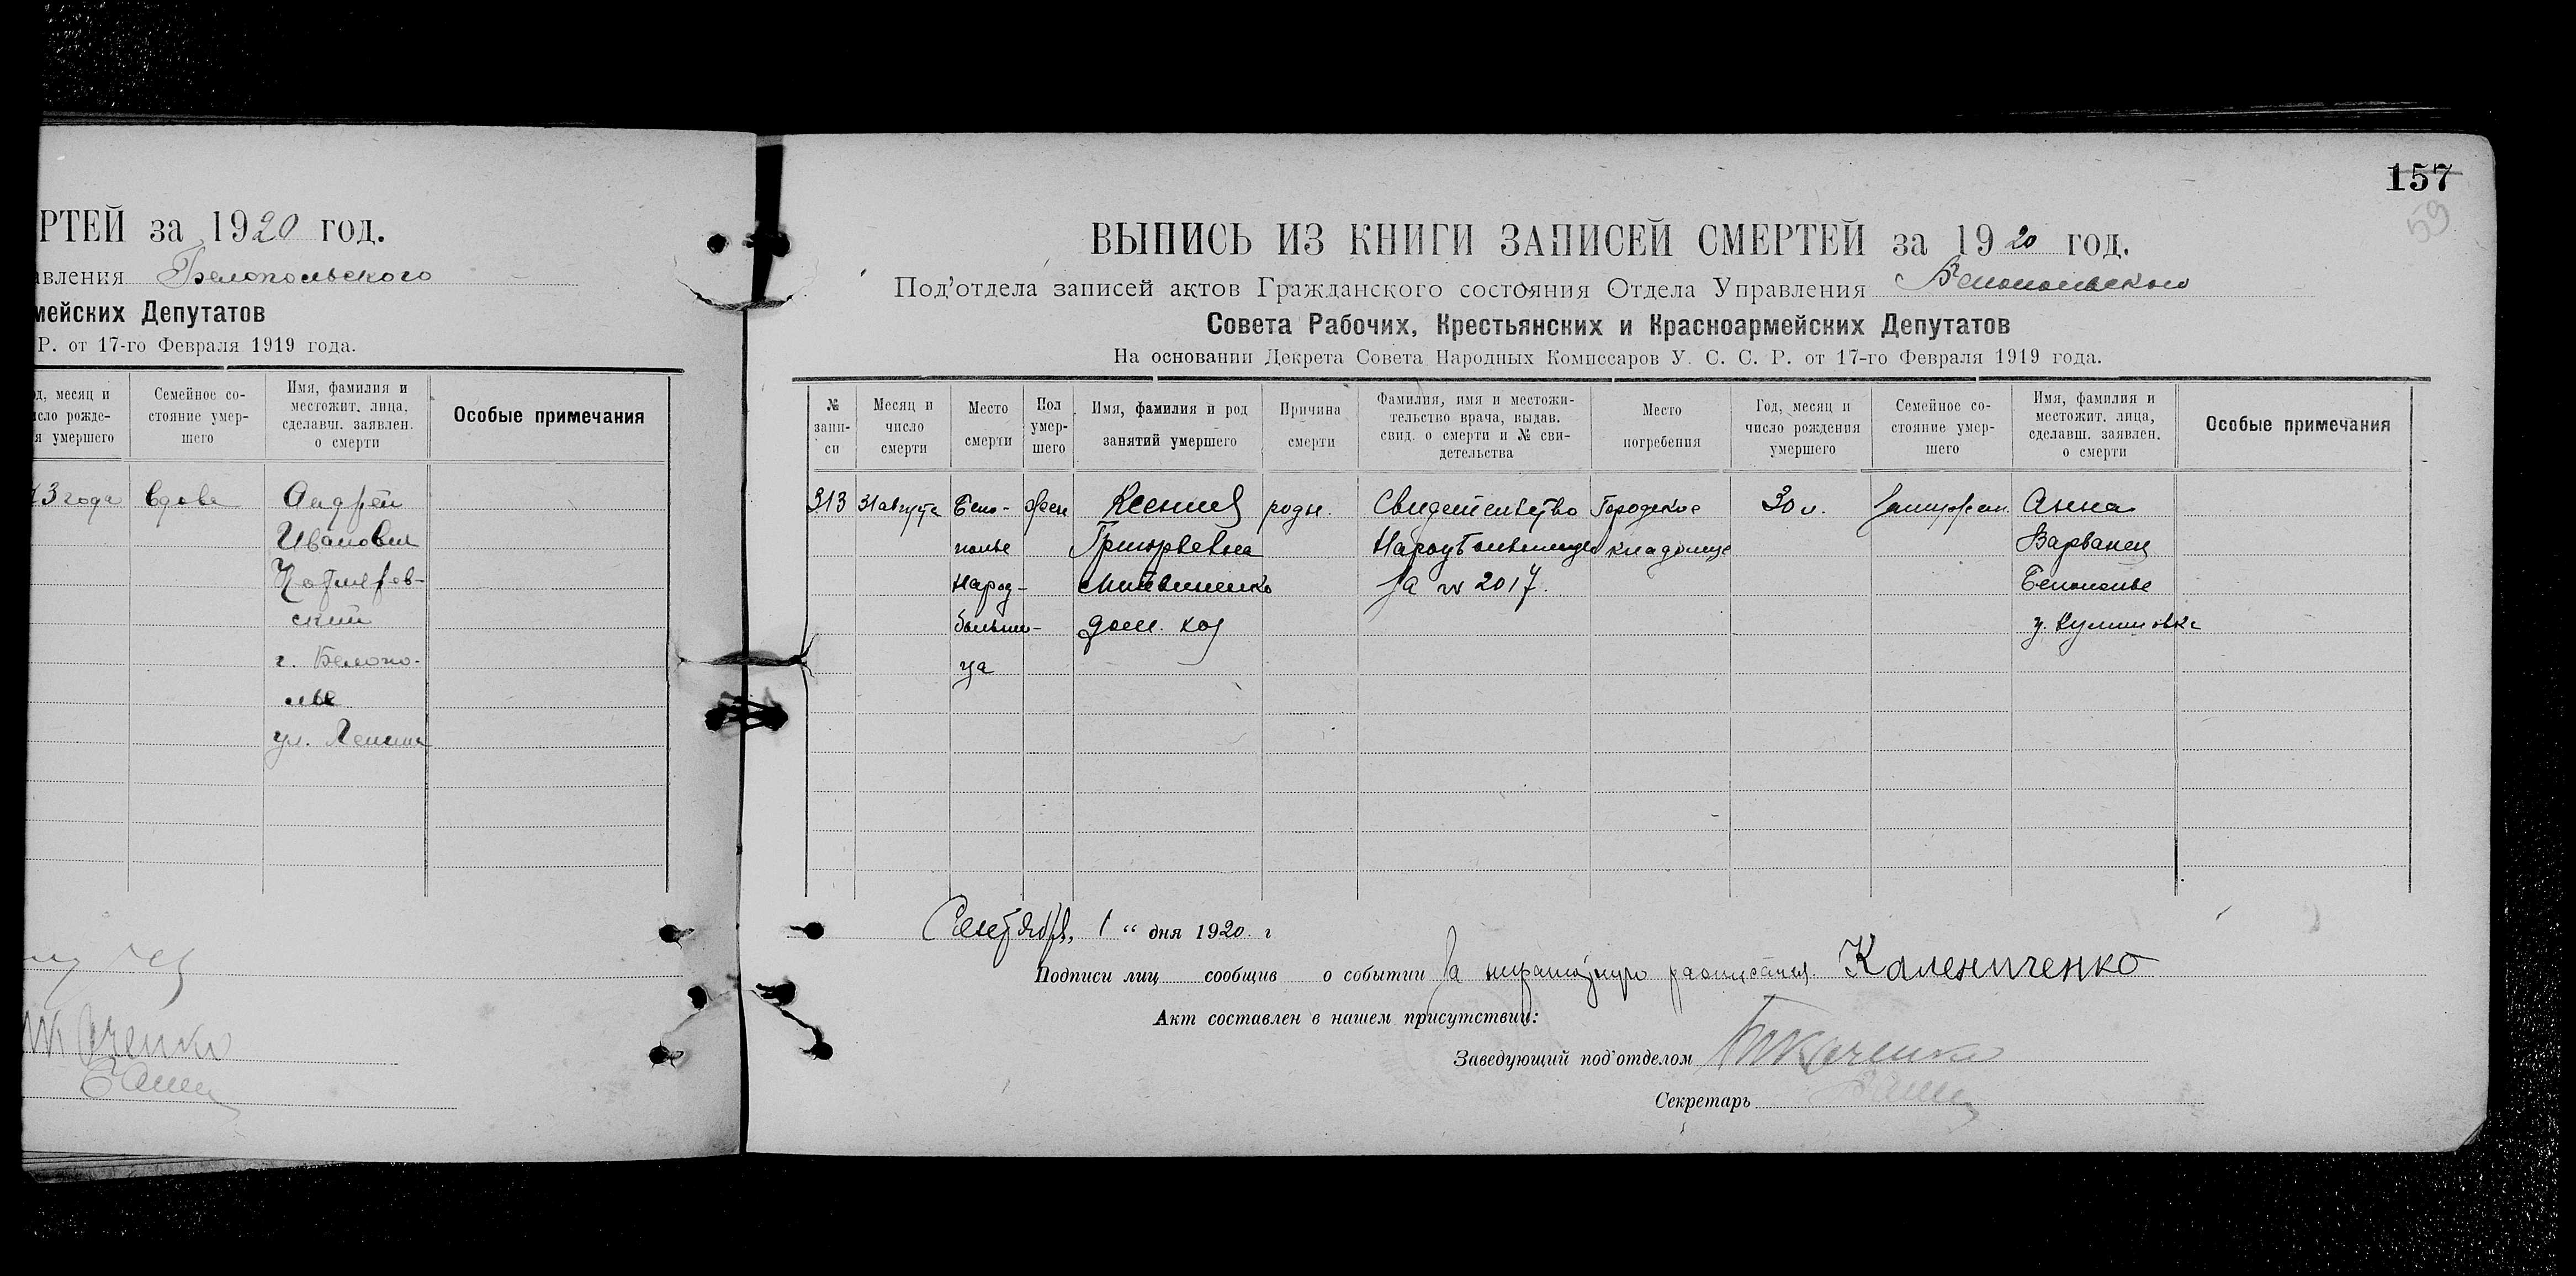 РТЕЙ за 1920 год.
авления Белопольского
мейских Депутатов
Р. от 17-го Февраля 1919 года.
од, месяц и
исло рожде-
я умершего
Семейное со-
стояние умер-
шего
Имя, фамилия и
местожит. лица,
сделавш. заявлен.
о смерти
Особые примечания
3 года
вдова
Андрей
Иванович
ский
г. Белопо-
лье
ул. Ленина
157
59
ВЫПИСЬ ИЗ КНИГИ ЗАПИСЕЙ СМЕРТЕЙ за 1920 год.
Под'отдела записей актов Гражданского состояния Отдела Управления Белопольского
Совета Рабочих, Крестьянских и Красноармейских Депутатов
На основании Декрета Совета Народных Комиссаров У. С. С. Р. от 17-го Февраля 1919 года.
№
запи-
си
Месяц и
число
смерти
Место
смерти
Пол
умер-
шего
Имя, фамилия и род
занятий умершего
Причина
смерти
Фамилия, имя и местожи-
тельство врача, выдав.
свид. о смерти и № сви-
детельства
Место
погребения
Год, месяц и
число рождения
умершего
Семейное со-
стояние умер-
шего
Имя, фамилия и
местожит. лица,
сделавш. заявлен.
о смерти
Особые примечания
313
31 августа
Бело-
полье
Народ-
больни-
ца
жен
Ксения
Григорьевна
Литвиненко
дом. хоз
роды.
Свидетельство
Нароубольницы
за № 2017.
Городское
кладбище
30 л.
замужем.
Анна
Варванец
Белополье
у. Кулишовка
Сентября, 1 " дня 1920 г
Подписи лиц сообщив о событии За неграмотную расписался Калениченко
Акт составлен в нашем присутствии:
Заведующий под'отделом Ткаченко
Секретарь